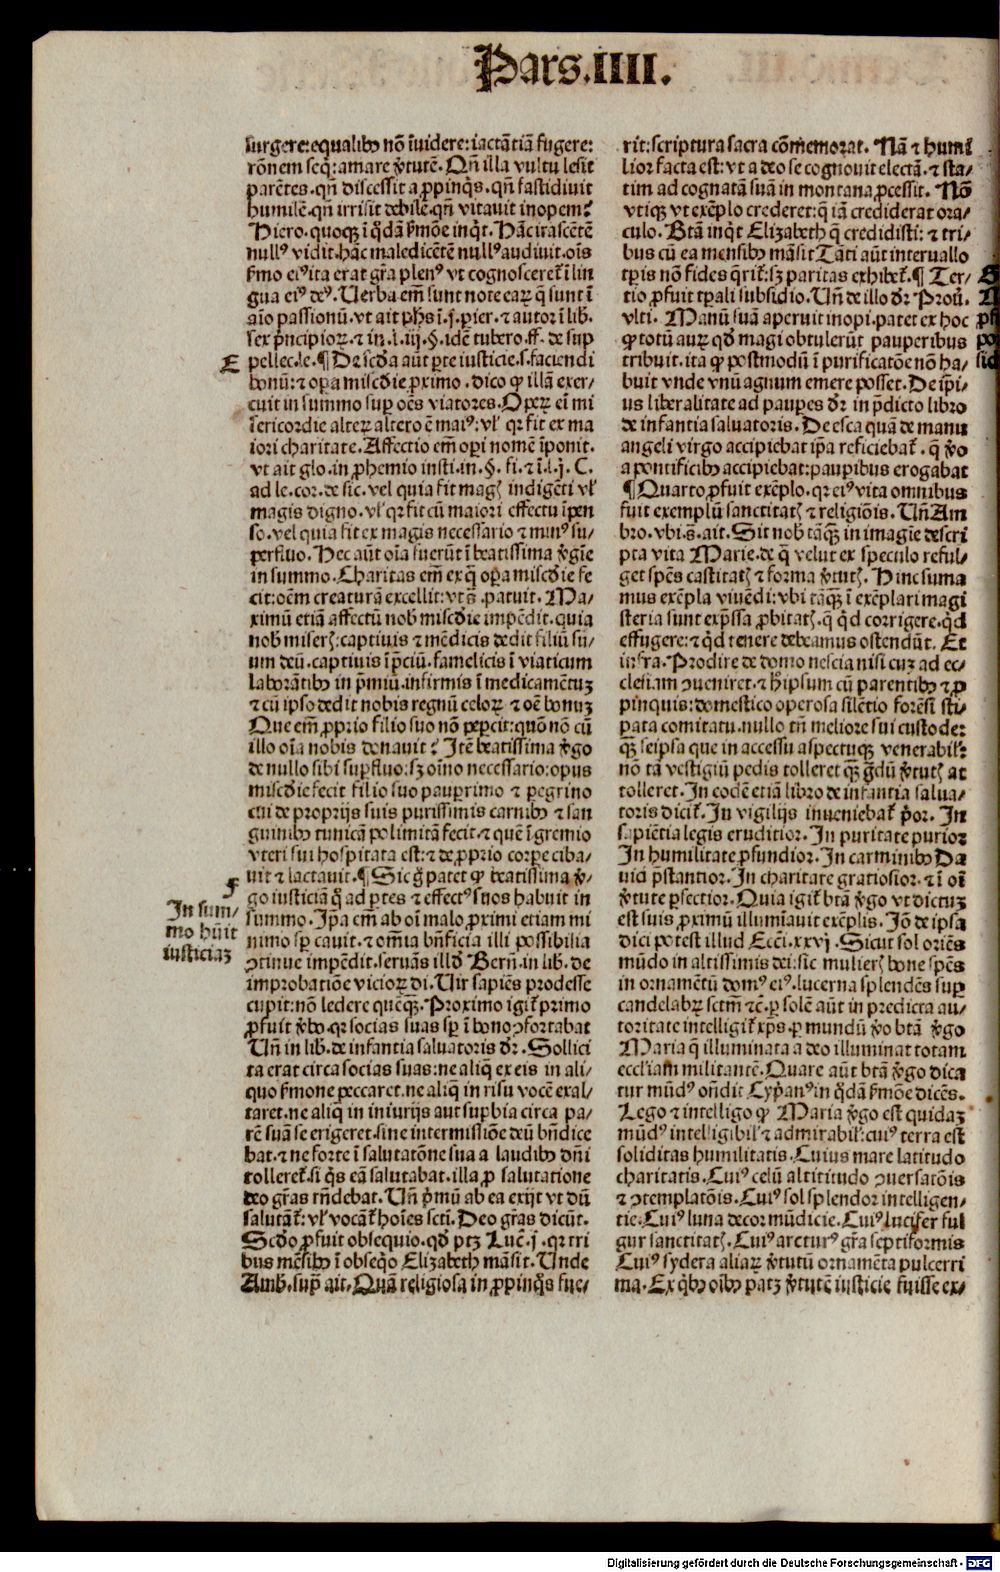 Pars.IIII.
surgere:equalibꝰ nō īuidere:iactātiā fugere:
rōnem seq̄:amare v̓tutē. Qn̄ illa vultu lesit
parētes.qn̄ discessit a ꝓpinqs.qn̄ fastidiuit
humilē.qn̄ irrisit debilē.qn̄ vitauit inopem?
Hiero.quoqꝫ ī q̄dā ẜmōe inq̓t. Hāc irascētē
nullꝰ vidit.hāc maledicētē nullꝰ audiuit.oīs
ẜmo eiꝰ ita erat gr̄a plenꝰ vt cognosceret̉ ī lin
gua eiꝰ deꝰ. Uerba em̄ sunt note eaꝝ q̄ sunt ī
aīo passionū.vt ait ph̄s ī.j.pier.⁊ autor ī lib.
sex p̄ncipioꝝ.⁊ in.l.iij.§.idē tubero.ff.de sup
E
pellec.le.¶De scd̄a aūt ꝑte iusticie.s.faciendi
bonū:⁊ oꝑa miscd̓ie ꝓximo.dico ꝙ illā exer⸗
cuit in summo suꝑ oēs viatores.Operꝝ ei̅ mi
sericordie alterꝝ altero ē maiꝰ:vl̓ qr fit ex ma
iori charitate. Affectio em̄ oꝑi nomē īponit.
vt ait glo.in ꝓhemio insti.in.§.fi.⁊ ī.l.j.C.
ad le.cor.de sic.vel quia fit magꝭ indigēti vl̓
magis digno.vl̓ qr fit cū maiori effectu īpen
so.vel quia fit ex magis necessario ⁊ minꝰ su⸗
perfluo. Hec aūt oīa fuerūt ī beatissima v̓gīe
in summo. Charitas em̄ ex q̄ oꝑa miscd̓ie fe
cit:oēm creaturā excellit:vt s̄.patuit. Ma⸗
ximū etiā affectū nob̓ miscd̓ie impēdit.quia
nob̓ miserꝭ:captiuis ⁊ mēdicis dedit filiū su⸗
um deū.captiuis ī p̄ciū.famelicis ī viaticum
laborātibꝰ in p̄miū.infirmis ī medicamētuꝫ
⁊ cū ipso dedit nobis regnū celoꝝ ⁊ oē bonuꝫ
Que em̄ ꝓprio filio suo nō peꝑcit:quō nō cū
illo oīa nobis donauit? Itē beatissima v̓go
de nullo sibi suꝑfluo:sꝫ oīno necessario:opus
miscd̓ie fecit filio suo pauꝑrimo ⁊ peregrino
cui de proprijs suis purissimis carnibꝰ ⁊ san
guinibꝰ tunicā polimitā fecit.⁊ quē ī gremio
vteri sui hospitata est:⁊ de ꝓprio corꝑe ciba⸗
F
uit ⁊ lactauit.¶Sic g̓ patet ꝙ beatissima v̓⸗
In sum⸗
mo hūit
iusticiaꝫ
go iusticiā q̊ ad ꝑtes ⁊ effectꝰ suos habuit in
summo. Ip̄a em̄ ab oī malo ꝓximi etiam mi
nimo sꝑ cauit.⁊ om̄ia bn̄ficia illi possibilia
ꝯtinue impēdit.seruās illd̓ Bern̄.in lib.de
improbatiōe vicioꝝ di. Uir sapiēs prodesse
cupit:nō ledere quēqꝫ. Proximo igit̉ primo
ꝓfuit v̓bo.qr socias suas sꝑ ī bono ꝯfortabat
Un̄ in lib.de infantia saluatoris dr̄. Sollici
ta erat circa socias suas:ne aliq̄ ex eis in ali⸗
quo ẜmone peccaret.ne aliq̄ in risu vocē exal⸗
taret.ne aliq̄ in iniurijs aut suꝑbia circa pa⸗
rē suā se erigeret.sine intermissiōe deū bn̄dice
bat.⁊ ne forte ī salutatōne sua a laudibꝰ dn̄i
tolleret̉.si q̄s eā salutabat.illa ꝓ salutatione
deo gr̄as rn̄debat. Un̄ p̄mū ab ea exijt vt dū
salutāt̉:vl̓ vocāt̉ hoīes scti.Deo gr̄as dicūt.
Scd̓o ꝓfuit obsequio.qd̓ ptꝫ Lucē.j.qr tri
bus mēsibꝰ ī obseq̓o Elizabeth māsit. Unde
Amb.sup̄ ait. Quā religiosa in ꝓpinq̓s fue⸗
rit:scriptura sacra cōmemorat. Nā ⁊ humi
lior facta est:vt a deo se cognouit electā.⁊ sta⸗
tim ad cognatā suā in montana ꝓcessit. Nō
vtiqꝫ vt exēplo crederet:q̄ iā crediderat ora⸗
culo. Bt̄ā inq̓t Elizabeth q̄ credidisti: ⁊ tri⸗
bus cū ea mensibꝰ māsit Tāti aūt interuallo
tꝑis nō fides q̄rit̉:sꝫ paritas exhibet̉.¶Ter⸗
tio ꝓfuit tꝑali subsidio. Un̄ de illo dr̄ Prou̅.
vlti. Manū suā aperuit inopi.patet ex hoc
ꝙ totū auꝝ qd̓ magi obtulerūt pauperibus
tribuit.ita ꝙ postmodū ī purificatōe nō ha⸗
buit vnde vnū agnum emere posset. De ip̄i⸗
us liberalitate ad pauꝑes dr̄ in p̄dicto libro
de infantia saluatoris. De esca quā de manu
angeli virgo accipiebat ip̄a reficiebat̉.q̄ v̓o
a pontificibꝰ accipiebat:pauꝑibus erogabat
¶Quarto ꝓfuit exēplo.qr eiꝰ vita omnibus
fuit exemplū sanctitatꝭ ⁊ religiōis. Un̄ Am
bro.vbi.s̄.ait. Sit nob̓ tāqꝫ in imagīe descri
pta vita Marie.de q̄ velut ex speculo reful⸗
get spēs castitatꝭ ⁊ forma v̓tutꝭ. Hinc suma
mus exēpla viuēdi:vbi tāqꝫ ī exēplari magi
steria sunt exp̄ssa ꝓbitatꝭ.q̄ qd̓ corrigere.qd̓
effugere:⁊ qd̓ tenere debeamus ostendūt. Et
infra. Prodire de domo nescia nisi cuꝫ ad ec⸗
clesiam ꝯueniret.⁊ h̓ ipsum cū parentibꝰ ⁊ ꝓ
pinquis:domestico operosa silētio forēsi sti⸗
pata comitatu.nullo tn̄ meliore sui custode:
qꝫ seipsa que in accessu aspectuqꝫ venerabil̓:
nō tā vestigiū pedis tolleret qꝫ g̓dū v̓tutꝭ at
tolleret. In eodē etiā libro de infantia salua⸗
toris dicit̉. In vigilijs inueniebat̉ p̓or. In
sapiētia legis eruditior. In puritate purior
In humilitate ꝓfundior. In carminibꝰ Da
uid p̄stantior. In charitate gratiosior.⁊ ī oī
v̓tute ꝑfectior. Quia igit̉ bt̄ā v̓go vt dictuꝫ
est suis ꝓximū illumīauit exēplis. Iō de ipsa
dici potest illud Ecci̅.xxvj. Sicut sol oriēs
mūdo in altissimis dei:sic mulierꝭ bone spēs
in ornamētū domꝰ eiꝰ.lucerna splendēs suꝑ
candelabꝝ sctm̄ ⁊c̄.ꝑ solē aūt in predicta au⸗
toritate intelligit̉ xp̄s.ꝑ mundū v̓o bt̄ā v̓go
Maria q̄ illuminata a deo illuminat totam
eccl̓iam militantē. Quare aūt bt̄ā v̓go dica
tur mūdꝰ on̄dit Cyp̓anꝰ in q̄dā ẜmōe dicēs.
Lego ⁊ intelligo ꝙ Maria v̓go est quidaꝫ
mūdꝰ intelligibil̓ ⁊ admirabil̓:cuiꝰ terra est
soliditas humilitatis. Cuius mare latitudo
charitatis. Cuiꝰ celū altitudo ꝯuersatōis
⁊ ꝯtemplatōis. Cuiꝰ sol splendor intelligen⸗
tie. Cuiꝰ luna decor mūdicie. Cuiꝰ lucifer ful
gur sanctitatꝭ. Cuiꝰ arcturꝰ gr̄a septiformis
Cuiꝰ sydera aliaꝝ v̓tutū ornamēta pulcerri
ma. Ex q̓bꝰ oībꝰ patꝫ v̓tutē iusticie fuisse ex⸗
Digitalisierung gefördert durch die Deutsche Forschungsgemeinschaft - DFG